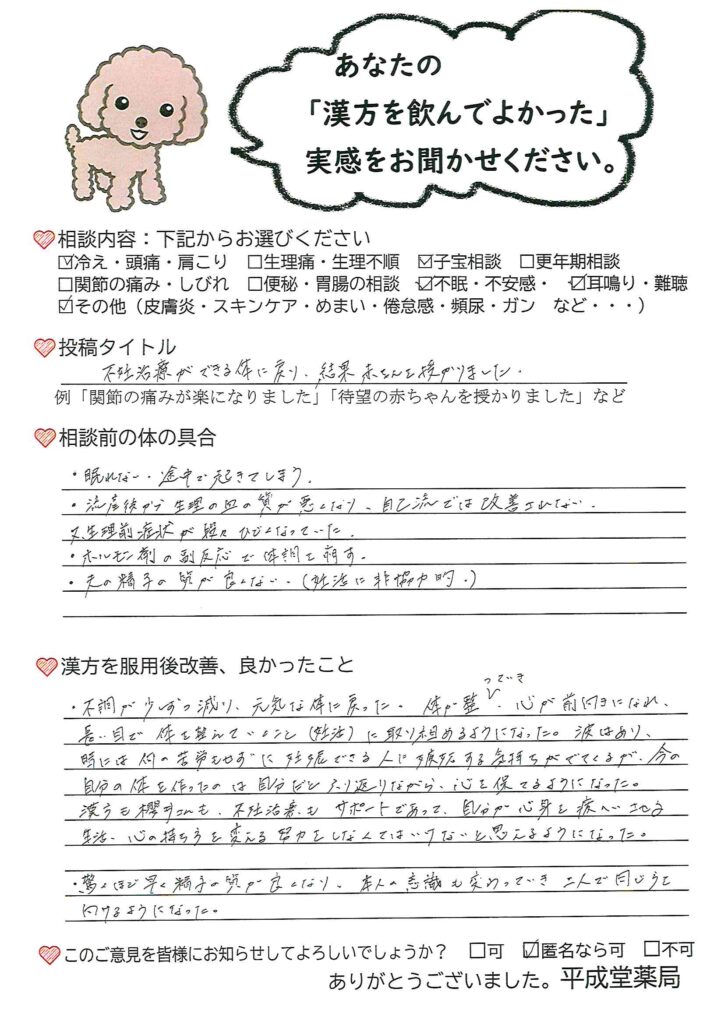 あなたの
「漢方を飲んでよかった」
実感をお聞かせください。
相談内容：下記からお選びください
☑冷え・頭痛・肩こり　□生理痛・生理不順　☑子宝相談　□更年期相談
□関節の痛み・しびれ　□便秘・胃腸の相談　☑不眠・不安感・　☑耳鳴り・難聴
☑その他（皮膚炎・スキンケア・めまい・倦怠感・頻尿・ガン　など・・・）
投稿タイトル
不妊治療ができる体に戻り、結果赤ちゃんを授かりました。
例「関節の痛みが楽になりました」「待望の赤ちゃんを授かりました」など
相談前の体の具合
・眠れない・途中で起きてしまう。
・流産後から生理の血の質が悪くなり、自己流では改善されない。
又、生理前症状が段々ひどくなっていた。
・ホルモン剤の副反応で体調を崩す。
・夫の精子の質が良くない。（妊活に非協力的。）
漢方を服用後改善、良かったこと
・不調が少しずつ減り、元気な体に戻った。体が整っていき、心が前向きになれ、
長い目で体を整えていくこと（妊活）に取り組めるようになった。波はあり、
時には何の苦労もせずに妊娠できる人に嫉妬する気持ちがでてくるが、今の
自分の体を作ったのは自分だとふり返りながら、心を保てるようになった。
漢方も 不妊治療もサポートであって、自分が心身を疲へいさせる
生活、心の持ち方を変える努力をしなくてはいけないと思えるようになった。
・驚くほど早く精子の質が良くなり、本人の意識も変わっていき二人で同じ方を
向けるようになった。
このご意見を皆様にお知らせしてよろしいでしょうか？　□可　☑匿名なら可　□不可
ありがとうございました。平成堂薬局